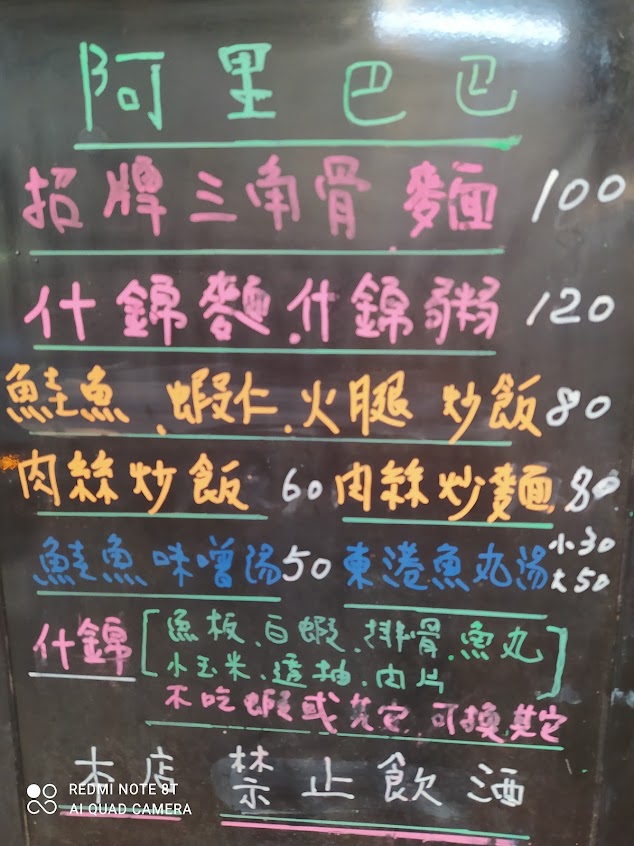 阿里巴巴
招牌三角骨麵 100
什錦麵.什錦粥 120
鮭魚.蝦仁.火腿炒飯 80
肉絲炒飯 60 肉絲炒麵 80
鮭魚味噌湯 50 東港魚丸湯 小30 大50
什錦[魚板.白蝦.排骨.魚丸
小玉米.透抽.肉片]
不吃蝦或其它可換其它
本店 禁止飲酒
REDMI NOTE 8T
AI QUAD CAMERA